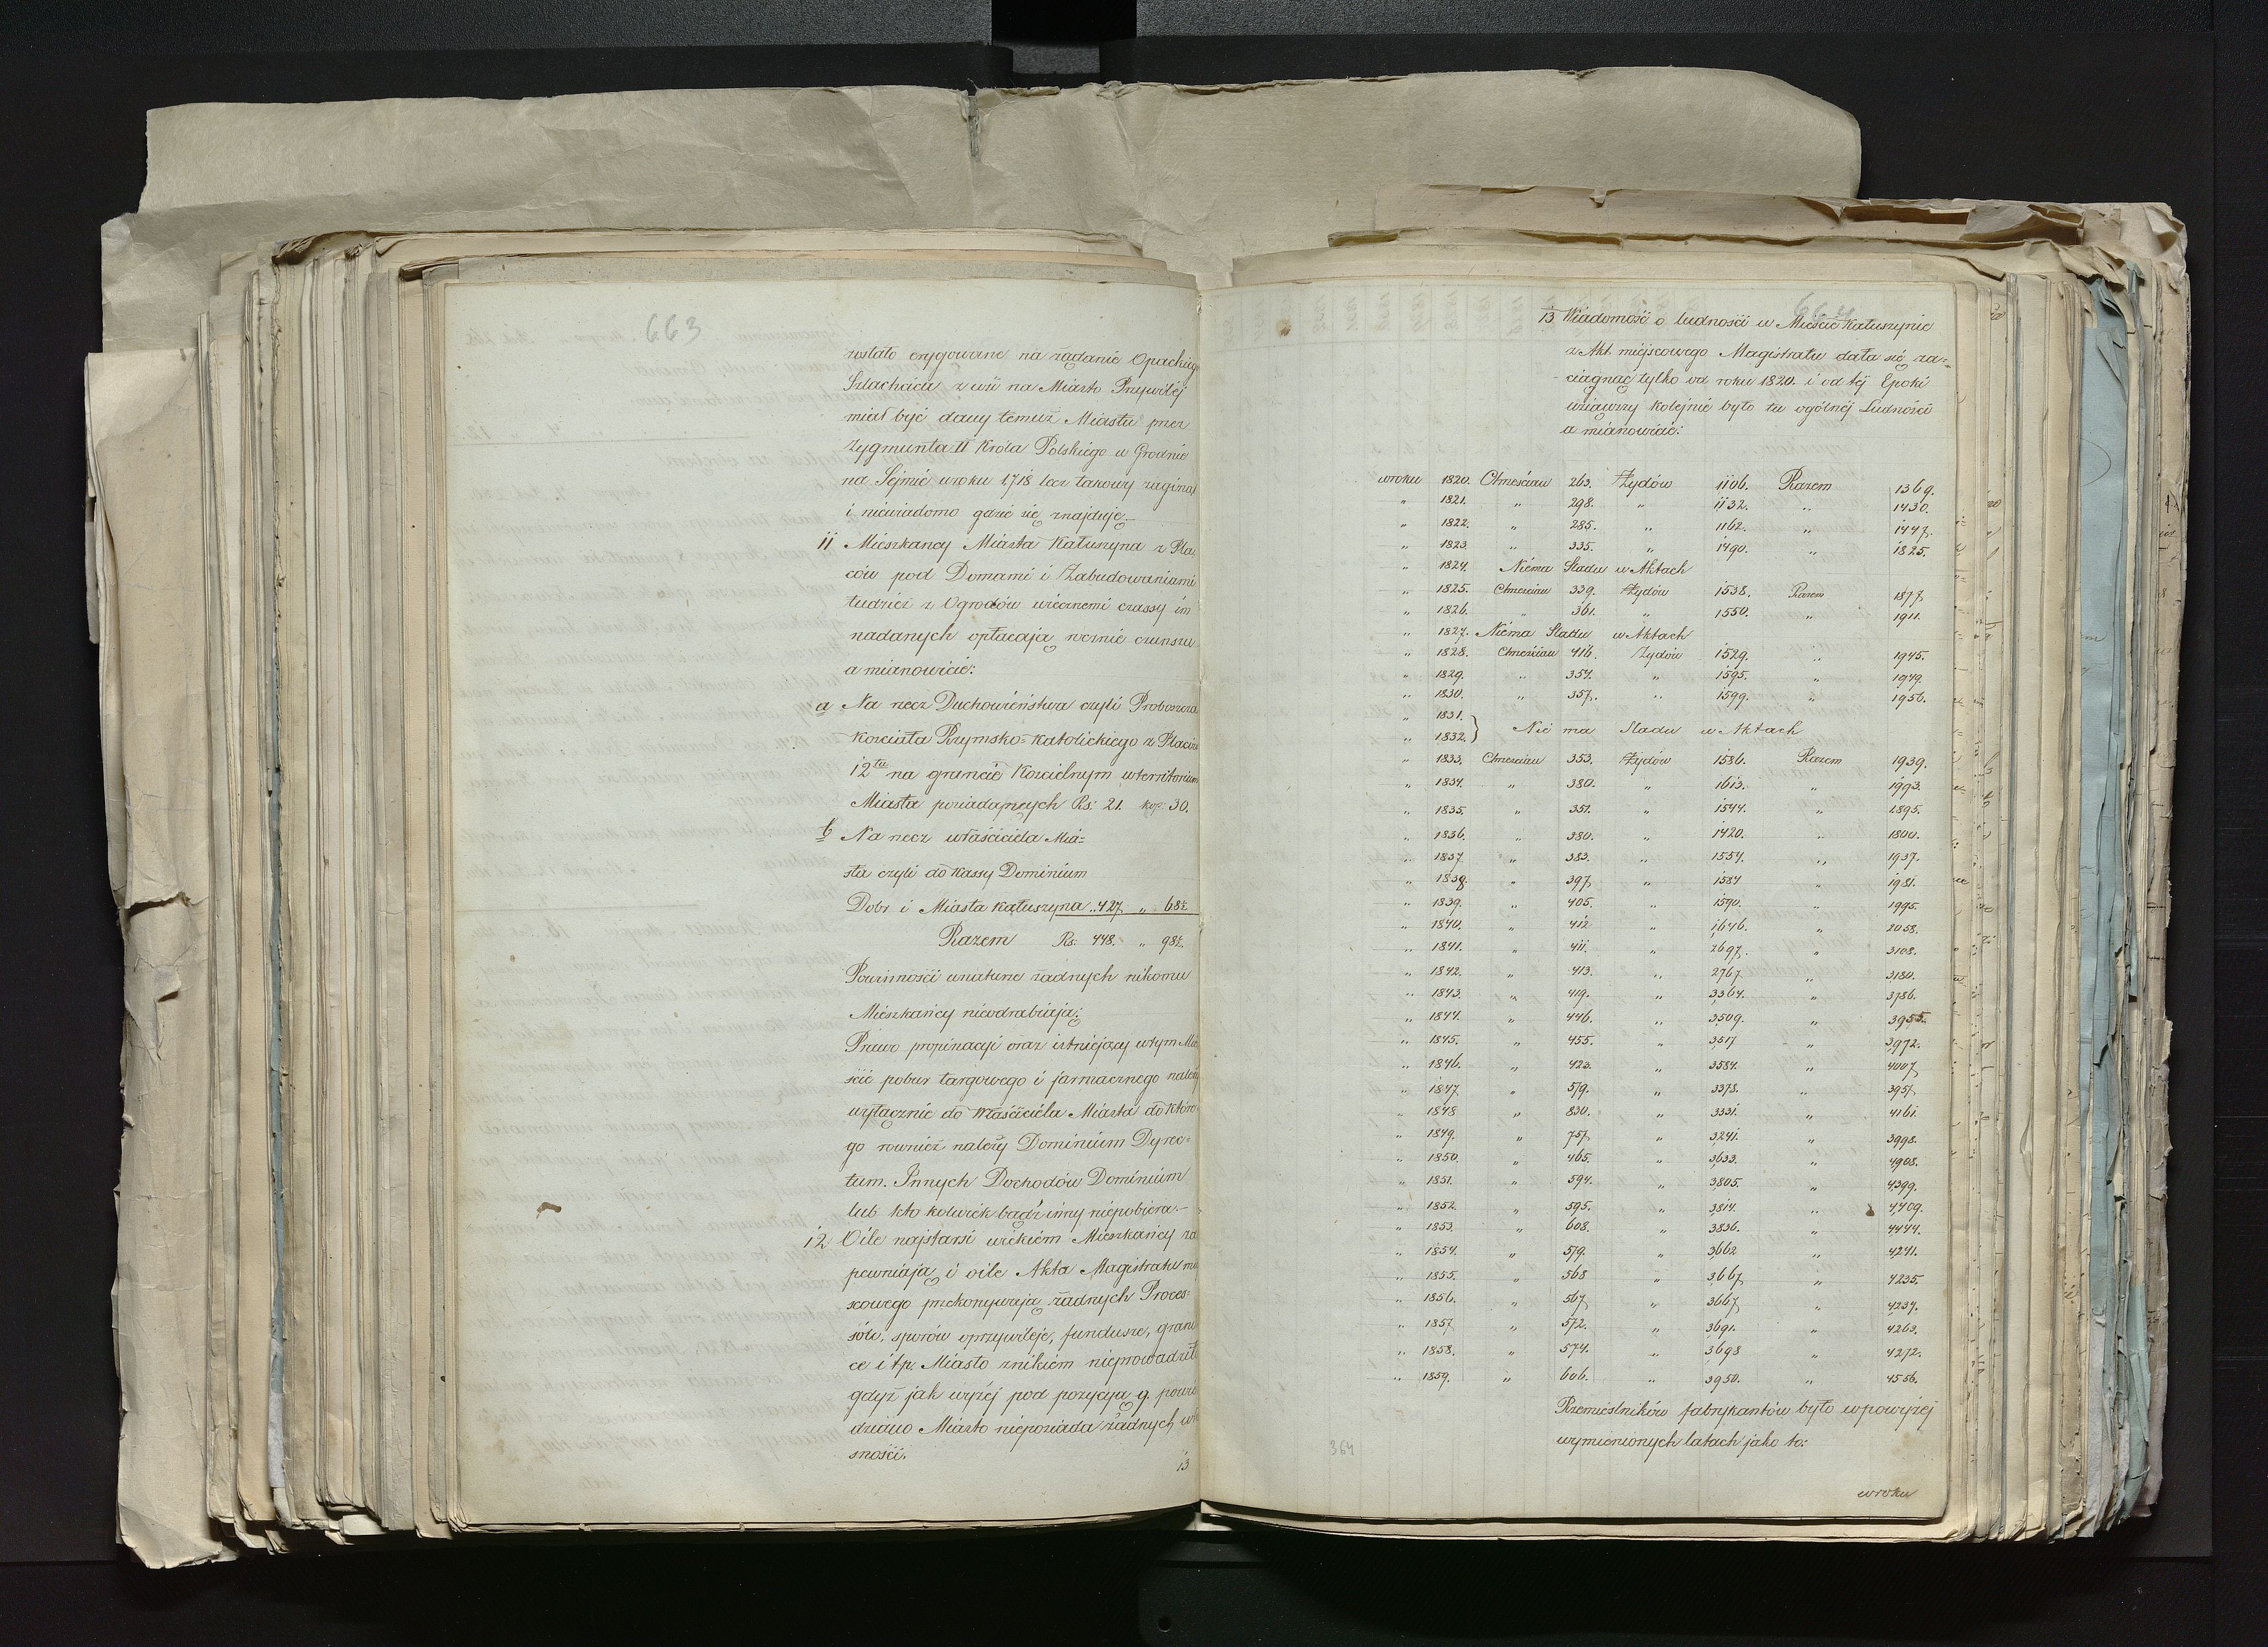 663
zostało erygowane na żądanie Opackiego
Szlachcica z wsi na Miasto Przywiléj
miał być dany temuż Miastu przez
Zygmunta II Króla Polskiego w Grodnie
na Sejmie wroku 1718 lecz takowy zaginął
i niewiadomo gdzie się znajduje.—
11 Mieszkańcy Miasta Kałuszyna z Pla=
ców pod Domami i Zabudowaniami
tudzież z Ogrodów wiecznemi czassy im
nadanych opłacają rocznie czynszu
a mianowicie:
a Na rzecz Duchowieństwa czyli Proboszcza
Kościoła Rzymsko=Katolickiego z Placów
12tu na gruncie Kościelnym wterritorium
Miasta posiadanych Rs: 21. kop: 30.
b Na rzecz właściciela Mia=
sta czyli do Kassy Dominium
Dobr i Miasta Kałuszyna „ 427 „ 68½
Razem Rs: 448. „ 98½.
Powinności wnaturze żadnych nikomu
Mieszkańcy nieodrabiają;
Prawo propinacyi oraz istniejący wtym Mie
ście pobór targowego i jarmacznego należy
wyłącznie do Właściciela Miasta do które=
go również należy Dominium Dyrec=
tum. Innych Dochodów Dominium
lub kto kolwiek bądź inny niepobiera.—
12. O ile najstarsi wiekiem Mieszkańcy za
pewniają i oile Akta Magistratu miej
scowego przekonywają żadnych Proces=
sów, sporów oprzywileje, fundusze, grani
ce i t.p. Miasto znikiem nieprowadziło
gdyż jak wyżéj pod pozycyą 9. powie
dziano Miasto nieposiada żadnych wła
sności.
13
664
13 Wiadomość o ludności w Mieście Kałuszynie
z Akt miejscowego Magistratu dała się za=
ciągnąć tylko od roku 1820. i od téj Epoki
wziąwszy kolejnie było tu ogólnéj Ludności
a mianowicie:
wroku 1820. Chrześcian 263. Żydów 1106. Razem 1369.
„ 1821. „ 298. „ 1132. „ 1430.
„ 1822. „ 285. „ 1162. „ 1447.
„ 1823. „ 335. „ 1490. „ 1825.
„ 1824. Niéma Sladu w Aktach
„ 1825. Chrześcian 339. Żydów 1538. Razem 1877.
„ 1826. „ 361. „ 1550. „ 1911.
„ 1827. Niéma Sladu w Aktach
„ 1828. Chrześcian 416. Żydów 1529. „ 1945.
„ 1829. „ 354. „ 1595. „ 1949.
„ 1830. „ 357. „ 1599. „ 1956.
„ 1831. }
„ 1832. } Nie ma Sladu w Aktach
„ 1833. Chrześcian 353. Żydów 1586. Razem 1939.
„ 1834. „ 380. „ 1613. „ 1993.
„ 1835. „ 351. „ 1544. „ 1895.
„ 1836. „ 380. „ 1420. „ 1800.
„ 1837. „ 383. „ 1554. „ 1937.
„ 1838. „ 397. „ 1584 „ 1981.
„ 1839. „ 405. „ 1590. „ 1995.
„ 1840. „ 412 „ 1646. „ 2058.
„ 1841. „ 411. „ 2697. „ 3108.
„ 1842. „ 413. „ 2767. „ 3180.
„ 1843. „ 419. „ 3364. „ 3786.
„ 1844. „ 446. „ 3509. „ 3955.
„ 1845. „ 455. „ 3517 „ 3972.
„ 1846. „ 423. „ 3584. „ 4007.
„ 1847. „ 579. „ 3378. „ 3957.
„ 1848 „ 830. „ 3331. „ 4161.
„ 1849. „ 757. „ 3241. „ 3998.
„ 1850. „ 465. „ 3633. „ 4908.
„ 1851. „ 594. „ 3805. „ 4399.
„ 1852. „ 595. „ 3814. „ 4409.
„ 1853. „ 608. „ 3836. „ 4444.
„ 1854. „ 579. „ 3662 „ 4241.
„ 1855. „ 568 „ 3667. „ 4235.
„ 1856. „ 567. „ 3667. „ 4234.
„ 1857 „ 572. „ 3691. „ 4263.
„ 1858. „ 574. „ 3698 „ 4272.
„ 1859. „ 606. „ 3950. „ 4556.
Rzemieślników fabrykantów było wpowyżej
wymienionych latach jako to:
364
wroku